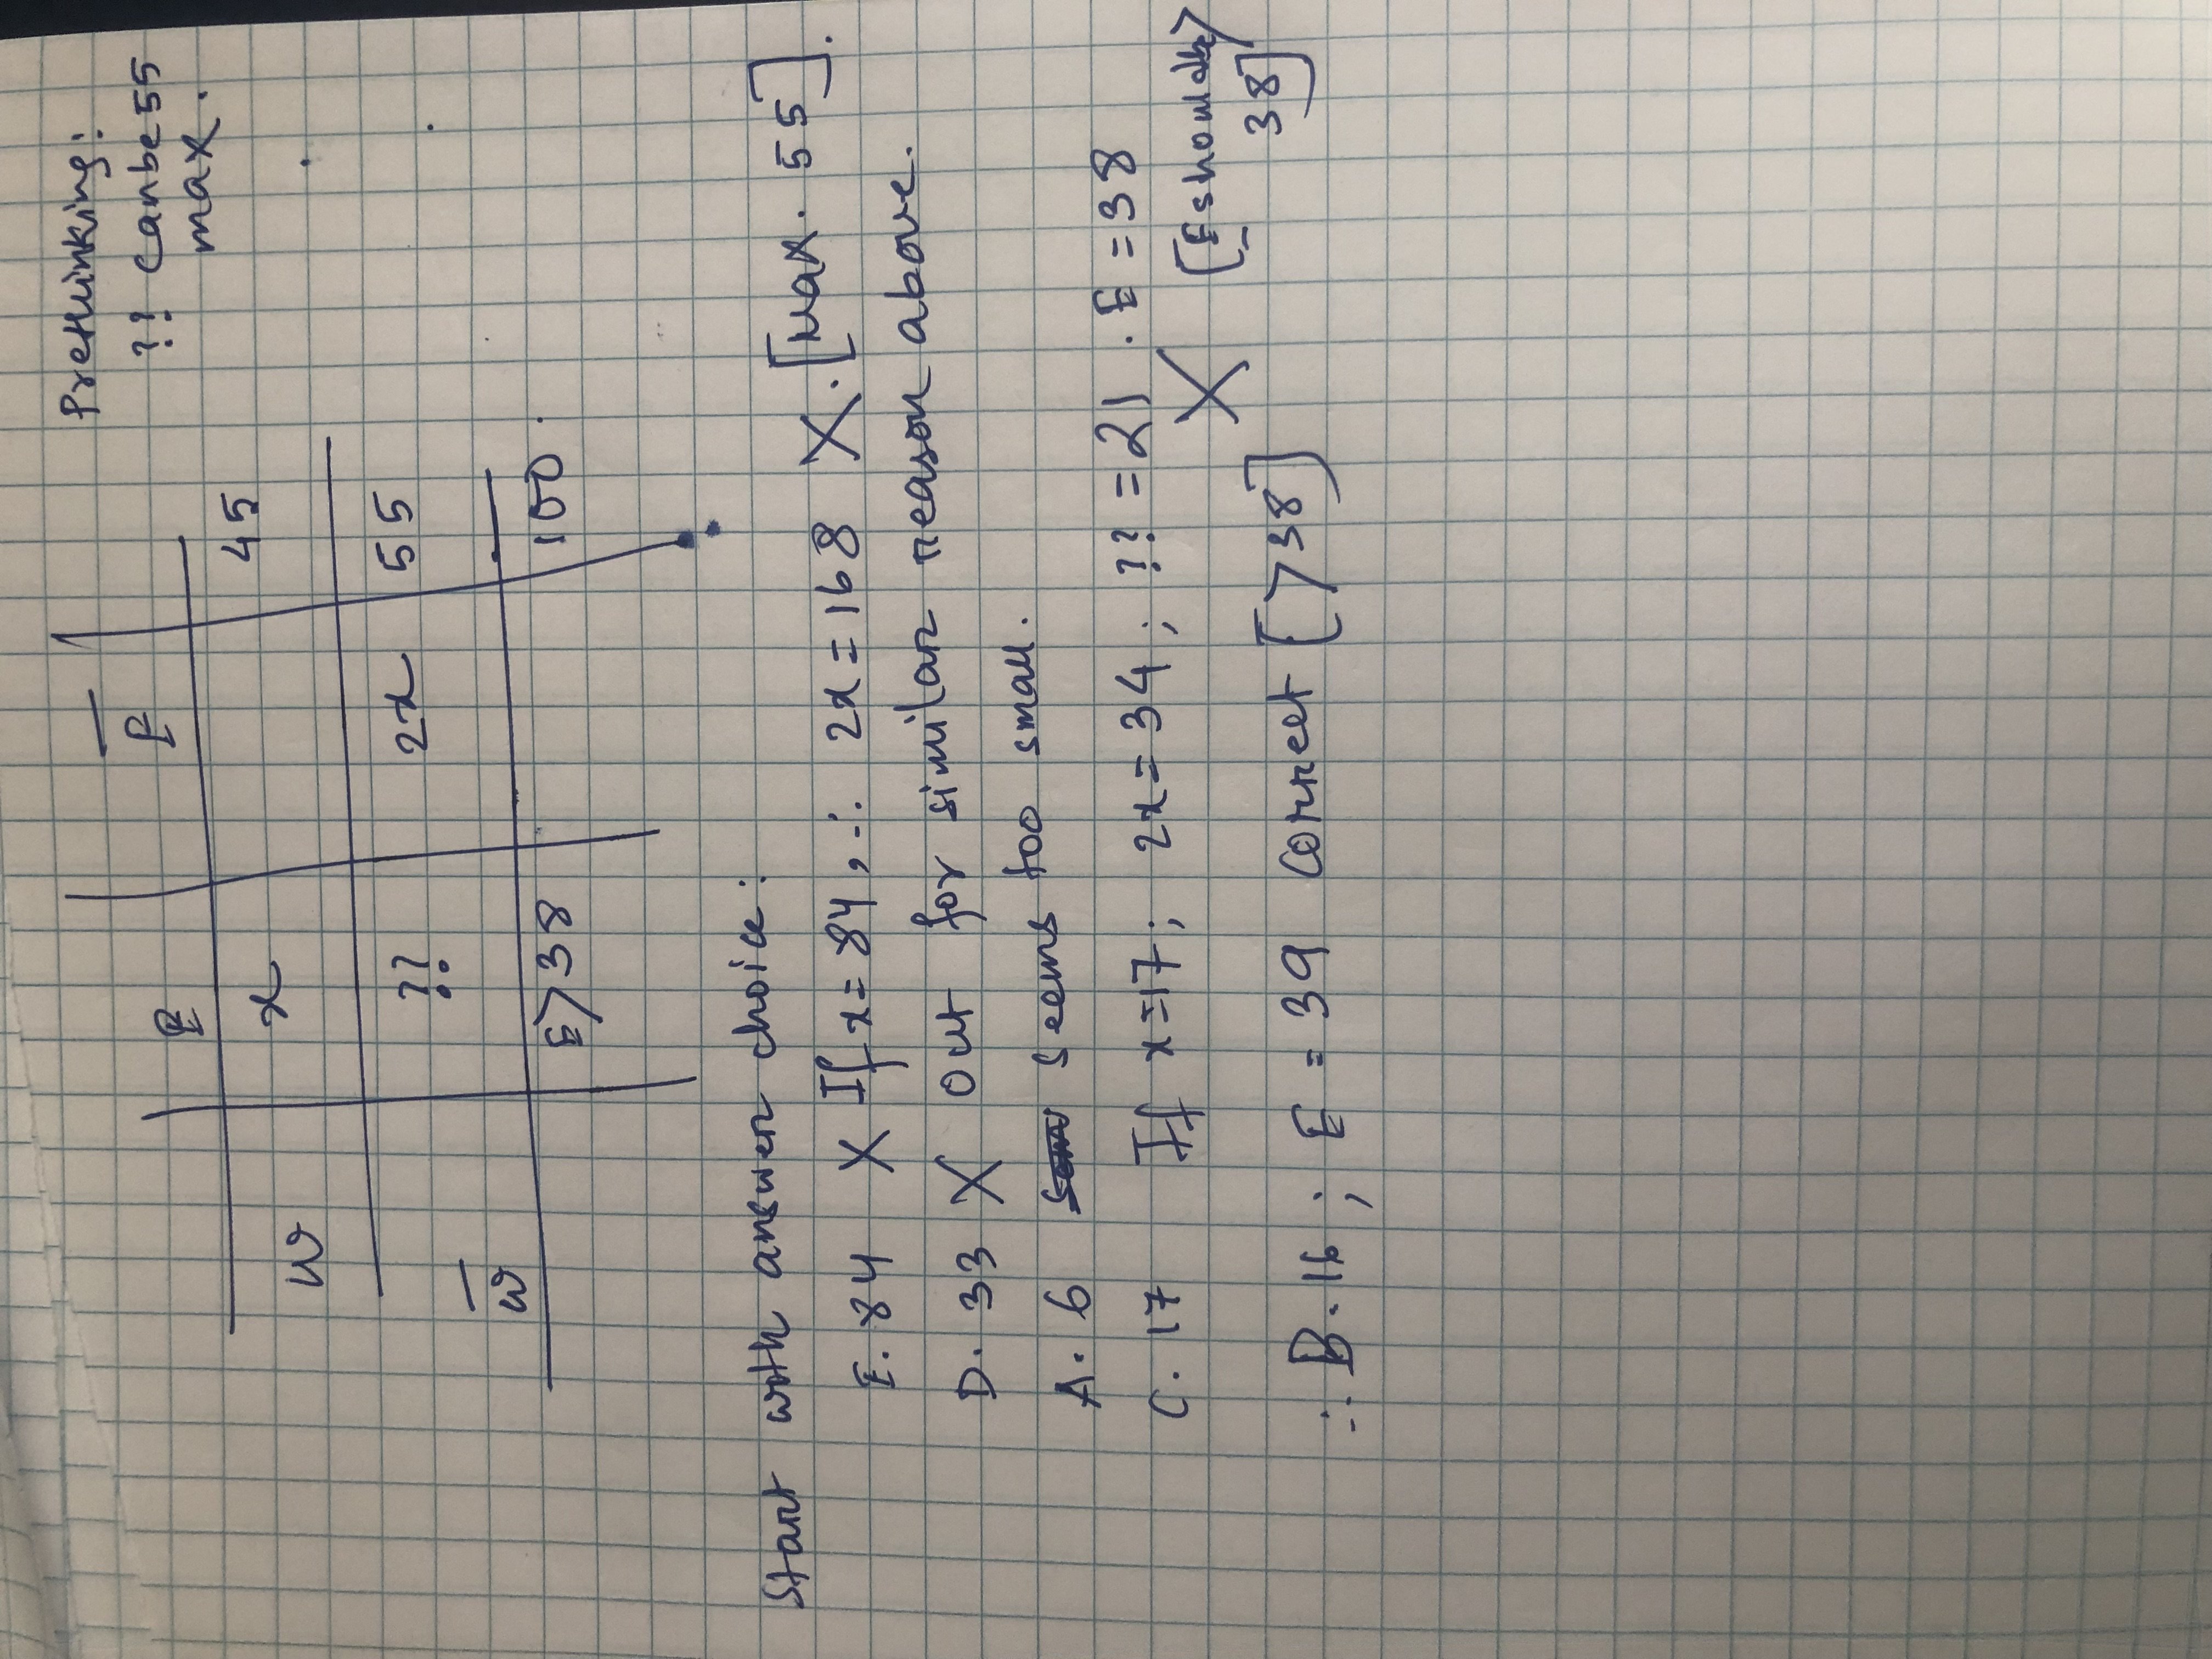 Prethinking:
?? can be 55
max.
E E̅
W x 45
W̅ ?? 2x 55
E>38 100.
Start with answer choice:
E. 84 X If x = 84, ∴ 2x = 168 X. [Max. 55].
D. 33 X out for similar reason above.
A. 6 seems too small.
C. 17 If x = 17; 2x = 34; ?? = 21. E = 38
X [E should be > 38]
∴ B. 16; E = 39 Correct [>38]